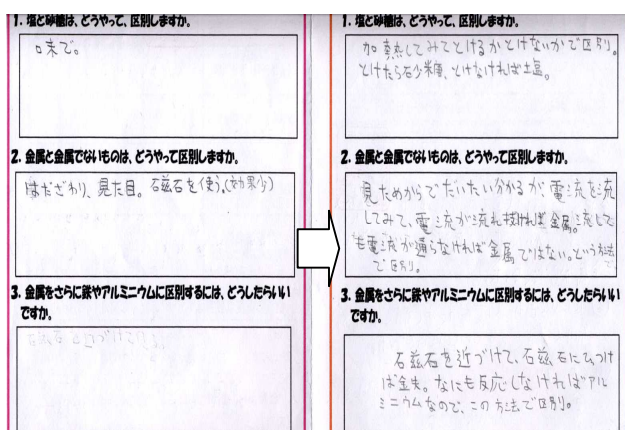 1. 塩と砂糖は、どうやって、区別しますか。
味で。
2. 金属と金属でないものは、どうやって区別しますか。
はだざわり、見た目。石磁石を使う。(効果少)
3. 金属をさらに鉄やアルミニウムに区別するには、どうしたらいい
ですか。
1. 塩と砂糖は、どうやって、区別しますか。
加熱してみてとけるかとけないかで区別。
とけたら砂糖、とけなければ塩。
2. 金属と金属でないものは、どうやって区別しますか。
見ためからでだいたい分かるが、電流を流
してみて、電流が流れ抜ければ金属。流して
も電流が通らなければ金属ではない。という方法
で区別。
3. 金属をさらに鉄やアルミニウムに区別するには、どうしたらいい
ですか。
石磁石を近づけて、石磁石にひっつけ
ば金失。なにも反応しなければアル
ミニウムなので、この方法で区別。